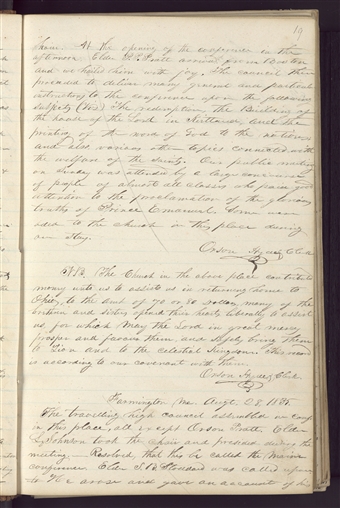 19
them. At the opening of the conference in the
afternoon Elder P. P. Pratt arrived from Boston
and we hailed him with joy. The council then
proceeded to deliver many general and particular
instructions to the conference upon the following
subjects (viz) The redemption, the Building of
the house of the Lord in Kirtland, and the
printing of the word of God to the nations
and also various other topics connected with
the welfare of the saints. Our public meeting
on Sunday was attended by a large concourse
of people of almost all classes who gave good
attention to the proclamation of the glorious
truths of Prince Emanuel. Some were
added to the church in this place during
our stay.
Orson Hyde, Clk
N.B. The Church in the above place contributed
money unto us to assist us in returning home to
Ohio, to the amt of 70 or 80 dollars, many of the
brethren and sisters opened their hearts liberally to assist
us for which May the Lord in great mercy
prosper and favour them, and safely bring them
to Zion and to the celestial kingdom. This record
is according to our covenant with them.
Orson Hyde, Clk
Farmington Me. Augt. 28, 1835
The travelling high council assembled in conf
in this place, all except Orson Pratt. Elder
L. Johnson took the chair and presided during the
meeting. Resolved, that this be called the Maine
conference. Elder S. B. Stoddard was called upon
to He arose and gave an account of his